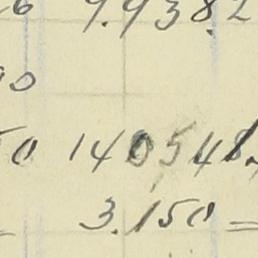 26 9.9382
00
50 140548.
3.150 =